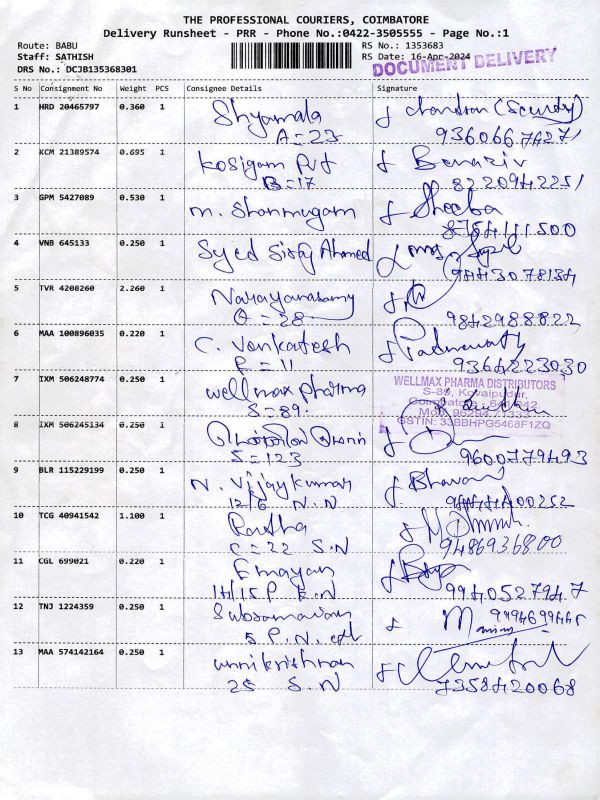 THE PROFESSIONAL COURIERS, COIMBATORE
Delivery Runsheet - PRR - Phone No.:0422-3505555 - Page No.:1
Route: BABU
Staff: SATHISH
DRS No.: DCJB135368301
RS No.: 1353683
RS Date: 16-Apr-2024
DOCUMENT DELIVERY
S No Consignment No Weight PCS Consignee Details Signature
1 HRD 20465797 0.360 1 Shyamala chandran (Security)
A = 23
2 KCM 21389574 0.695 1 Kosigam Pvt
B = 17 8220942251
3 GPM 5427089 0.530 1 M. Shanmugam Sheeba
8754111500
4 VNB 645133 0.250 1 Syed Ahmed
5 TVR 4208260 2.260 1 Narayanasamy
O = 28 9842988822
6 MAA 100896035 0.220 1 C. Venkatesh Padmavathy
E = 11 9364223030
7 IXM 506248774 0.250 1 wellmax pharma
S = 89.
WELLMAX PHARMA DISTRIBUTORS
S-89, Kovaipudur,
GSTIN: 33BBHPG5468F1ZQ
8 IXM 506245134 0.250 1
S = 123 9600779493
9 BLR 115229199 0.250 1 N. Vijaykumar Bhavani
12/6 N.N
10 TCG 40941542 1.100 1
C = 22 S.N 9486936800
11 CGL 699021 0.220 1 Emayan
14/15 P E.N 9940527947
12 TNJ 1224359 0.250 1
5 P.N.
13 MAA 574142164 0.250 1 unnikrishnan
25 S.N 7358420068